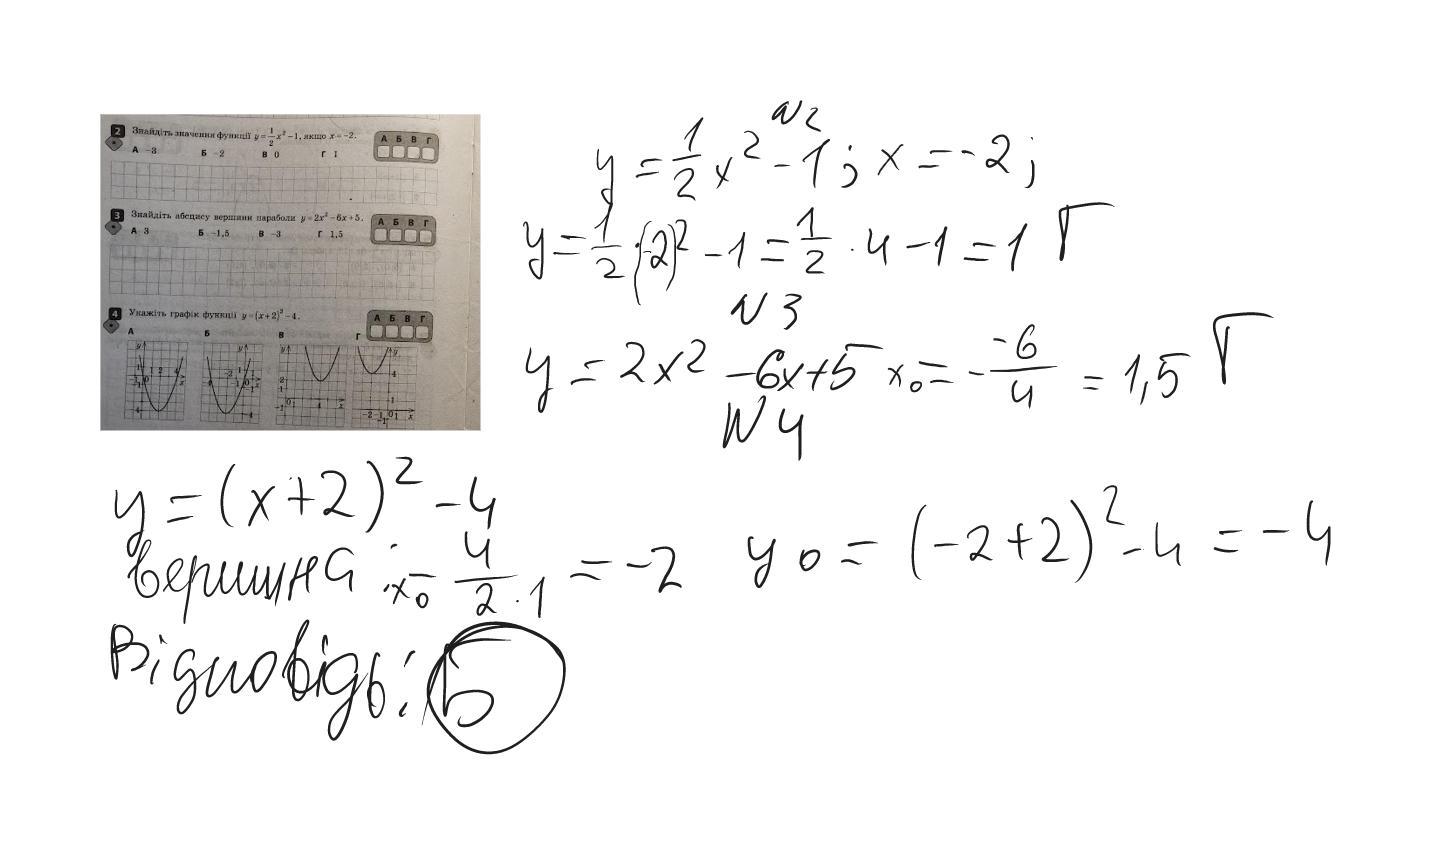 2 Знайдіть значення функції y = 1/2 x² − 1, якщо x = −2.
А Б В Г
А −3 Б −2 В 0 Г 1
3 Знайдіть абсцису вершини параболи y = 2x² − 6x + 5.
А Б В Г
А 3 Б −1,5 В −3 Г 1,5
4 Укажіть графік функції y = (x + 2)² − 4.
А Б В Г
А Б В Г
N2
y = 1/2 x² − 1; x = −2;
y = 1/2 · (−2)² − 1 = 1/2 · 4 − 1 = 1 Г
N3
y = 2x² − 6x + 5 x₀ = − −6/4 = 1,5 Г
N4
y = (x+2)² − 4
вершина: x₀ = − 4/2·1 = −2 y₀ = (−2+2)² − 4 = −4
Відповідь: Б